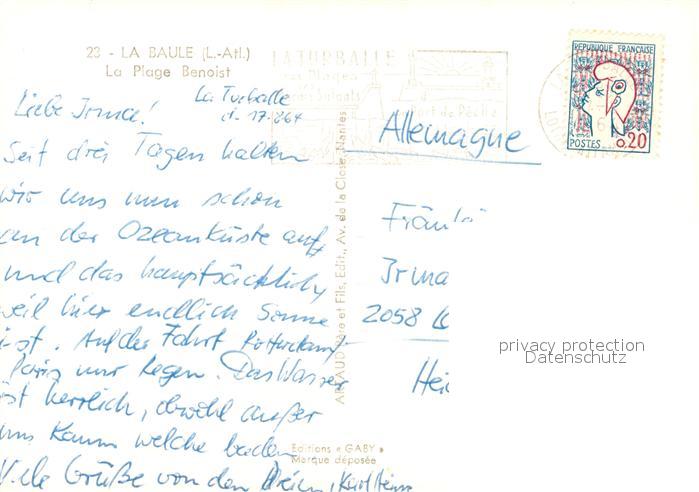 23 - LA BAULE (L.-Atl.)
La Plage Benoist
LA TURBALLE
Port de Pêche
REPUBLIQUE FRANÇAISE
POSTES 0,20
La Turballe
d. 17.864
Liebe Irma!
Seit drei Tagen halten
wir uns nun schon
an der Ozeanküste auf,
und das hauptsächlich
weil hier endlich Sonne
ist. Auf der Fahrt Rotterdam-
Paris nur Regen. Das Wasser
ist herrlich, obwohl außer
uns kaum welche baden
Viele Grüße von den Dreien, Karl Heinz
Allemagne
Fräulei
Irma
2058
Hei
ARTAUD Père et Fils, Edit., Av. de la Close, Nantes
Editions « GABY »
Marque déposée
privacy protection
Datenschutz